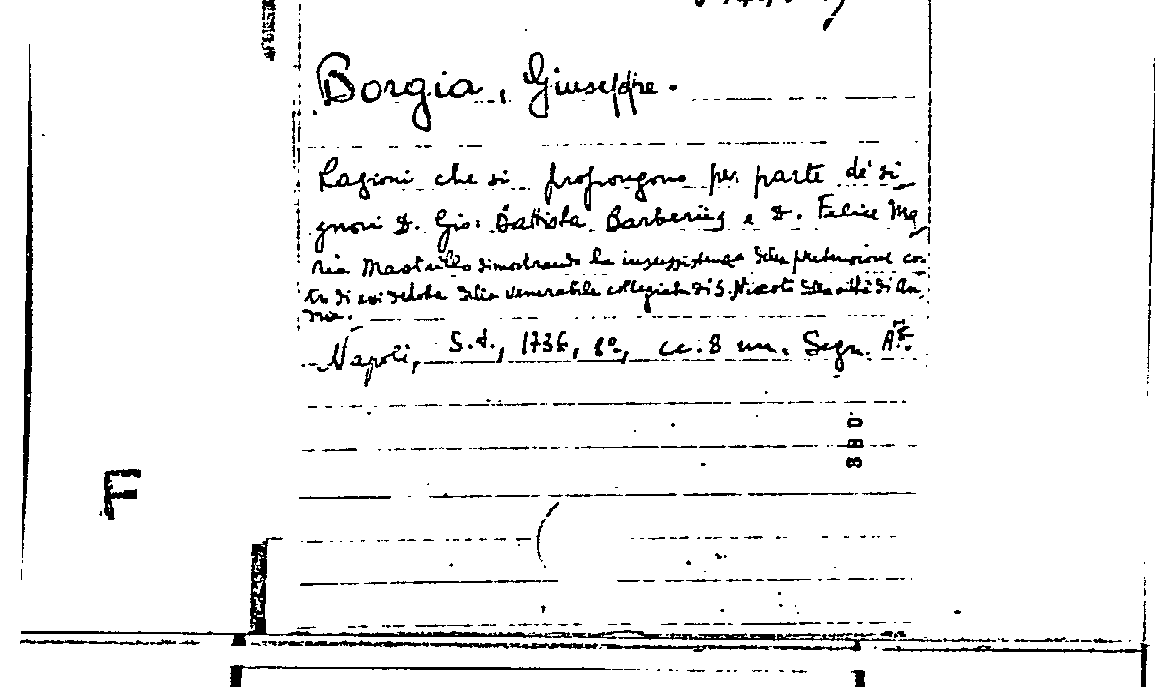 Borgia, Giuseppe.
Ragioni che si propongono per parte de' si
gnori D. Gio: Battista Barberiis e D. Felice Ma
ria Mastrillo dimostrando la insussistenza della pretenzione con
tro di essi dedotta dalla venerabile collegiata di S. Nicolò della città di An
dria.
Napoli, S.d., 1736, 8º, cc. 8 nn. Segn. A
F